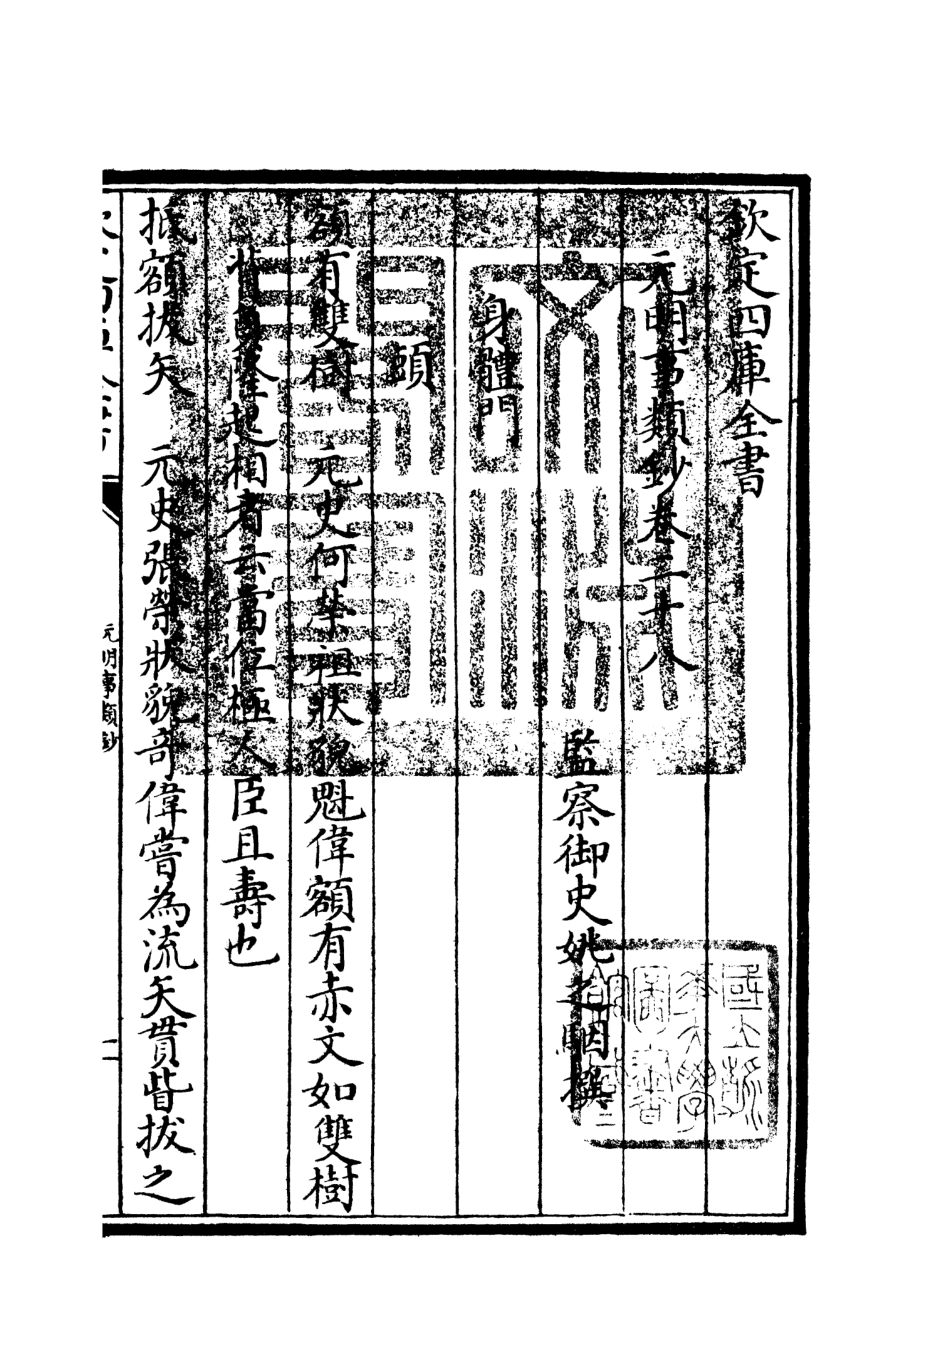 欽定四庫全書
元明事類鈔卷二十八
監察御史姚之駰撰
身體門
頭
額有雙樹　元史何榮祖狀貌魁偉額有赤文如雙樹
背負隆起相者云當位極人臣且壽也
抵額拔矢　元史張榮狀貌奇偉嘗為流矢貫眥拔之
元明事類鈔